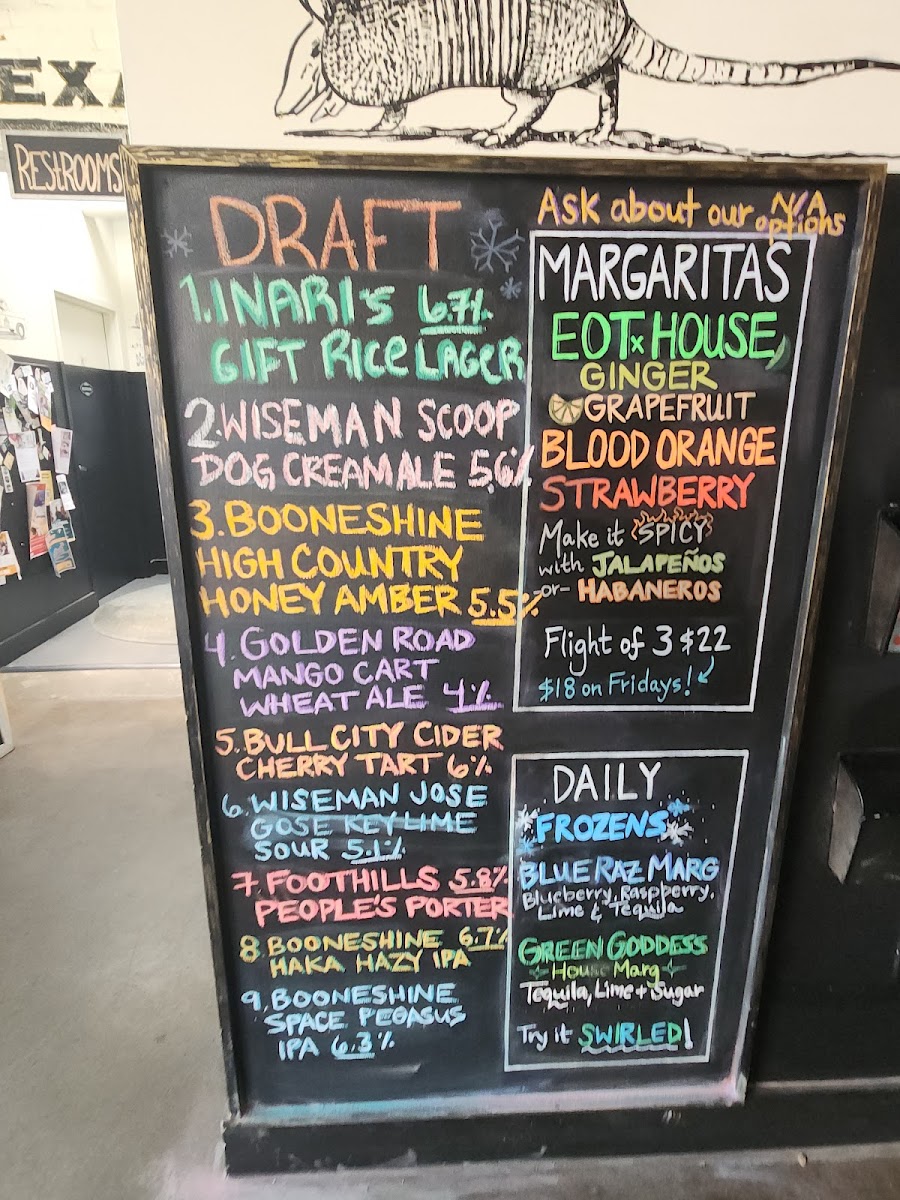 EXA
RESTROOMS
DRAFT
1. INARI'S 6.7%
GIFT RICE LAGER
2. WISEMAN SCOOP
DOG CREAM ALE 5.6%
3. BOONESHINE
HIGH COUNTRY
HONEY AMBER 5.5%
4. GOLDEN ROAD
MANGO CART
WHEAT ALE 4%
5. BULL CITY CIDER
CHERRY TART 6%
6. WISEMAN JOSE
GOSE KEY LIME
SOUR 5.1%
7. FOOTHILLS 5.8%
PEOPLE'S PORTER
8. BOONESHINE 6.7%
HAKA HAZY IPA
9. BOONESHINE
SPACE PEGASUS
IPA 6.3%
Ask about our N/A
options
MARGARITAS
EOTX HOUSE
GINGER
GRAPEFRUIT
BLOOD ORANGE
STRAWBERRY
Make it SPICY
with JALAPEÑOS
-or- HABANEROS
Flight of 3 $22
$18 on Fridays!
DAILY
FROZENS
BLUE RAZ MARG
Blueberry, Raspberry,
Lime & Tequila
GREEN GODDESS
House Marg
Tequila, Lime + Sugar
Try it SWIRLED!